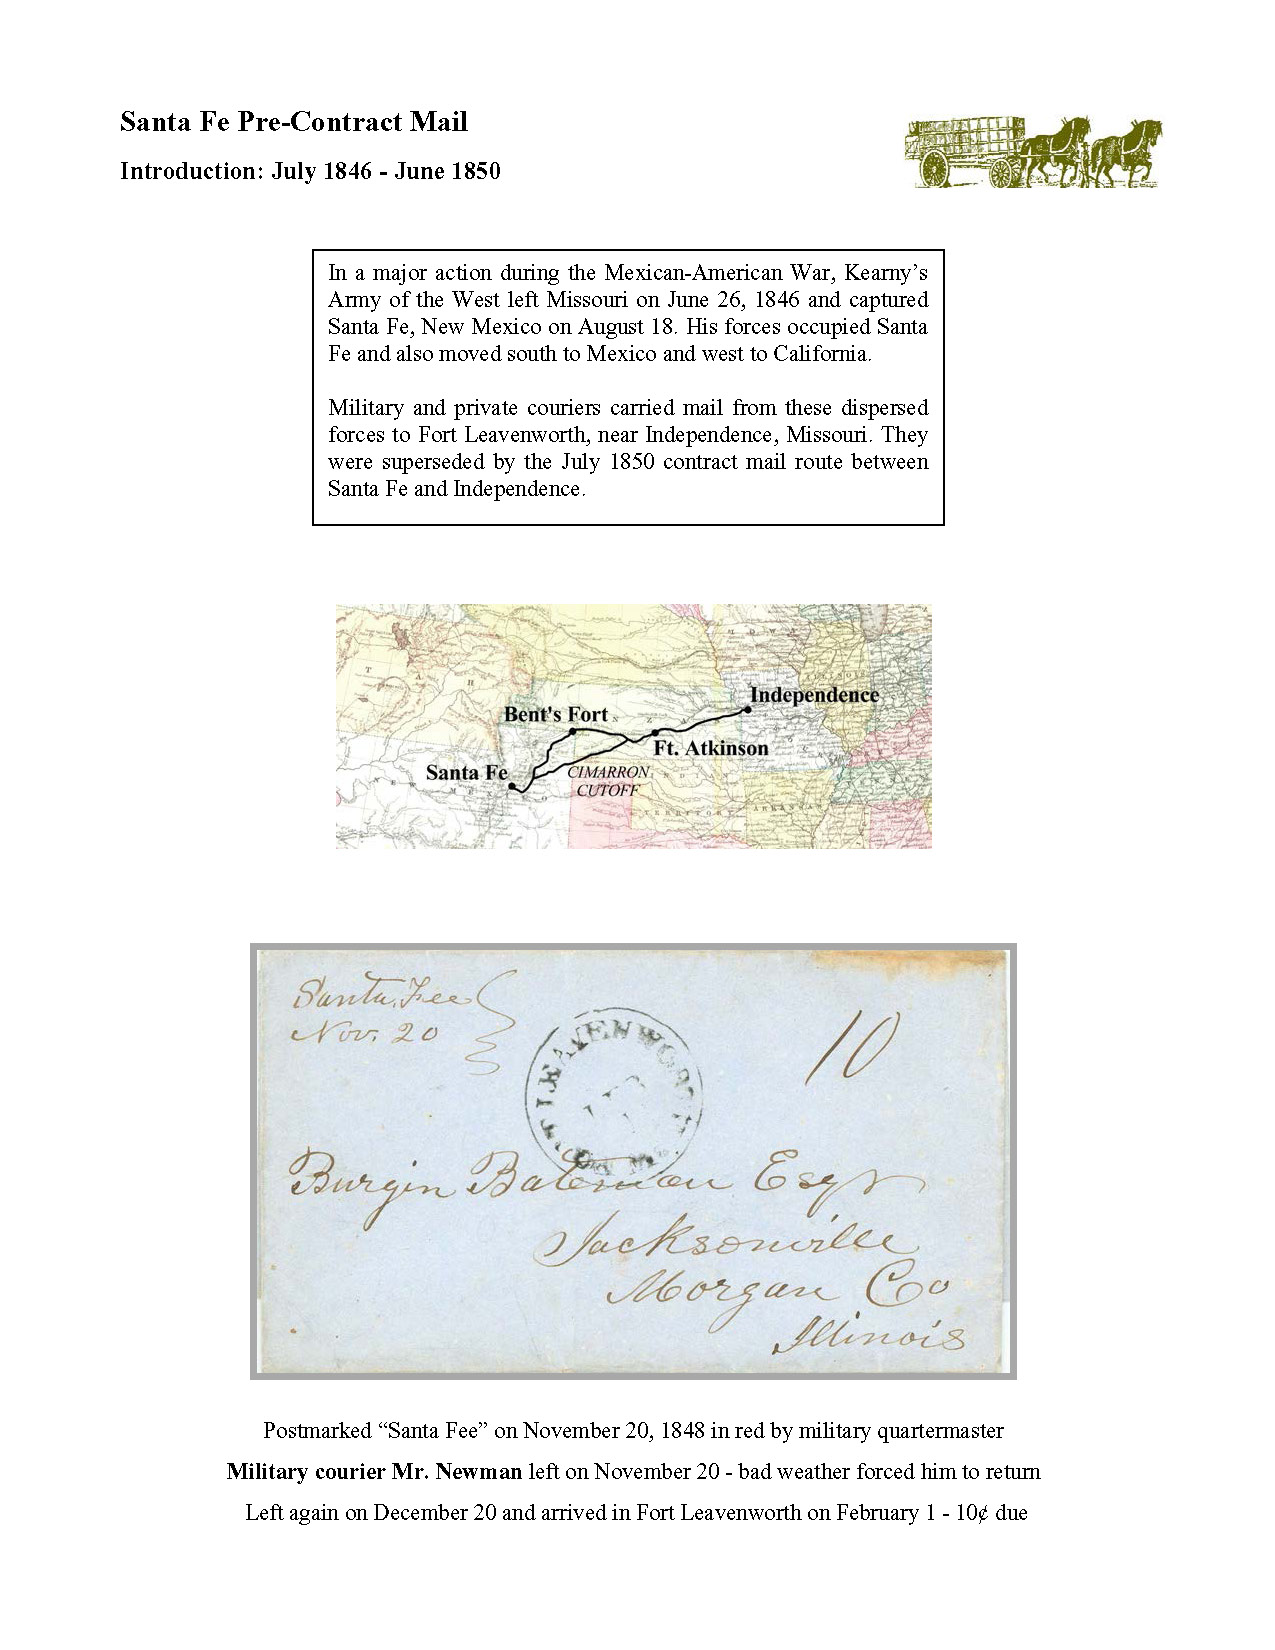 Santa Fe Pre-Contract Mail
Introduction: July 1846 - June 1850
In a major action during the Mexican-American War, Kearny’s
Army of the West left Missouri on June 26, 1846 and captured
Santa Fe, New Mexico on August 18. His forces occupied Santa
Fe and also moved south to Mexico and west to California.
Military and private couriers carried mail from these dispersed
forces to Fort Leavenworth, near Independence, Missouri. They
were superseded by the July 1850 contract mail route between
Santa Fe and Independence.
Independence
Bent's Fort
Ft. Atkinson
Santa Fe
CIMARRON
CUTOFF
TERRITORY
ARKANSAS
Santa Fee
Nov. 20
10
LEAVENWORTH
Burgin Bateman Esqr
Jacksonville
Morgan Co
Illinois
Postmarked “Santa Fee” on November 20, 1848 in red by military quartermaster
Military courier Mr. Newman left on November 20 - bad weather forced him to return
Left again on December 20 and arrived in Fort Leavenworth on February 1 - 10¢ due